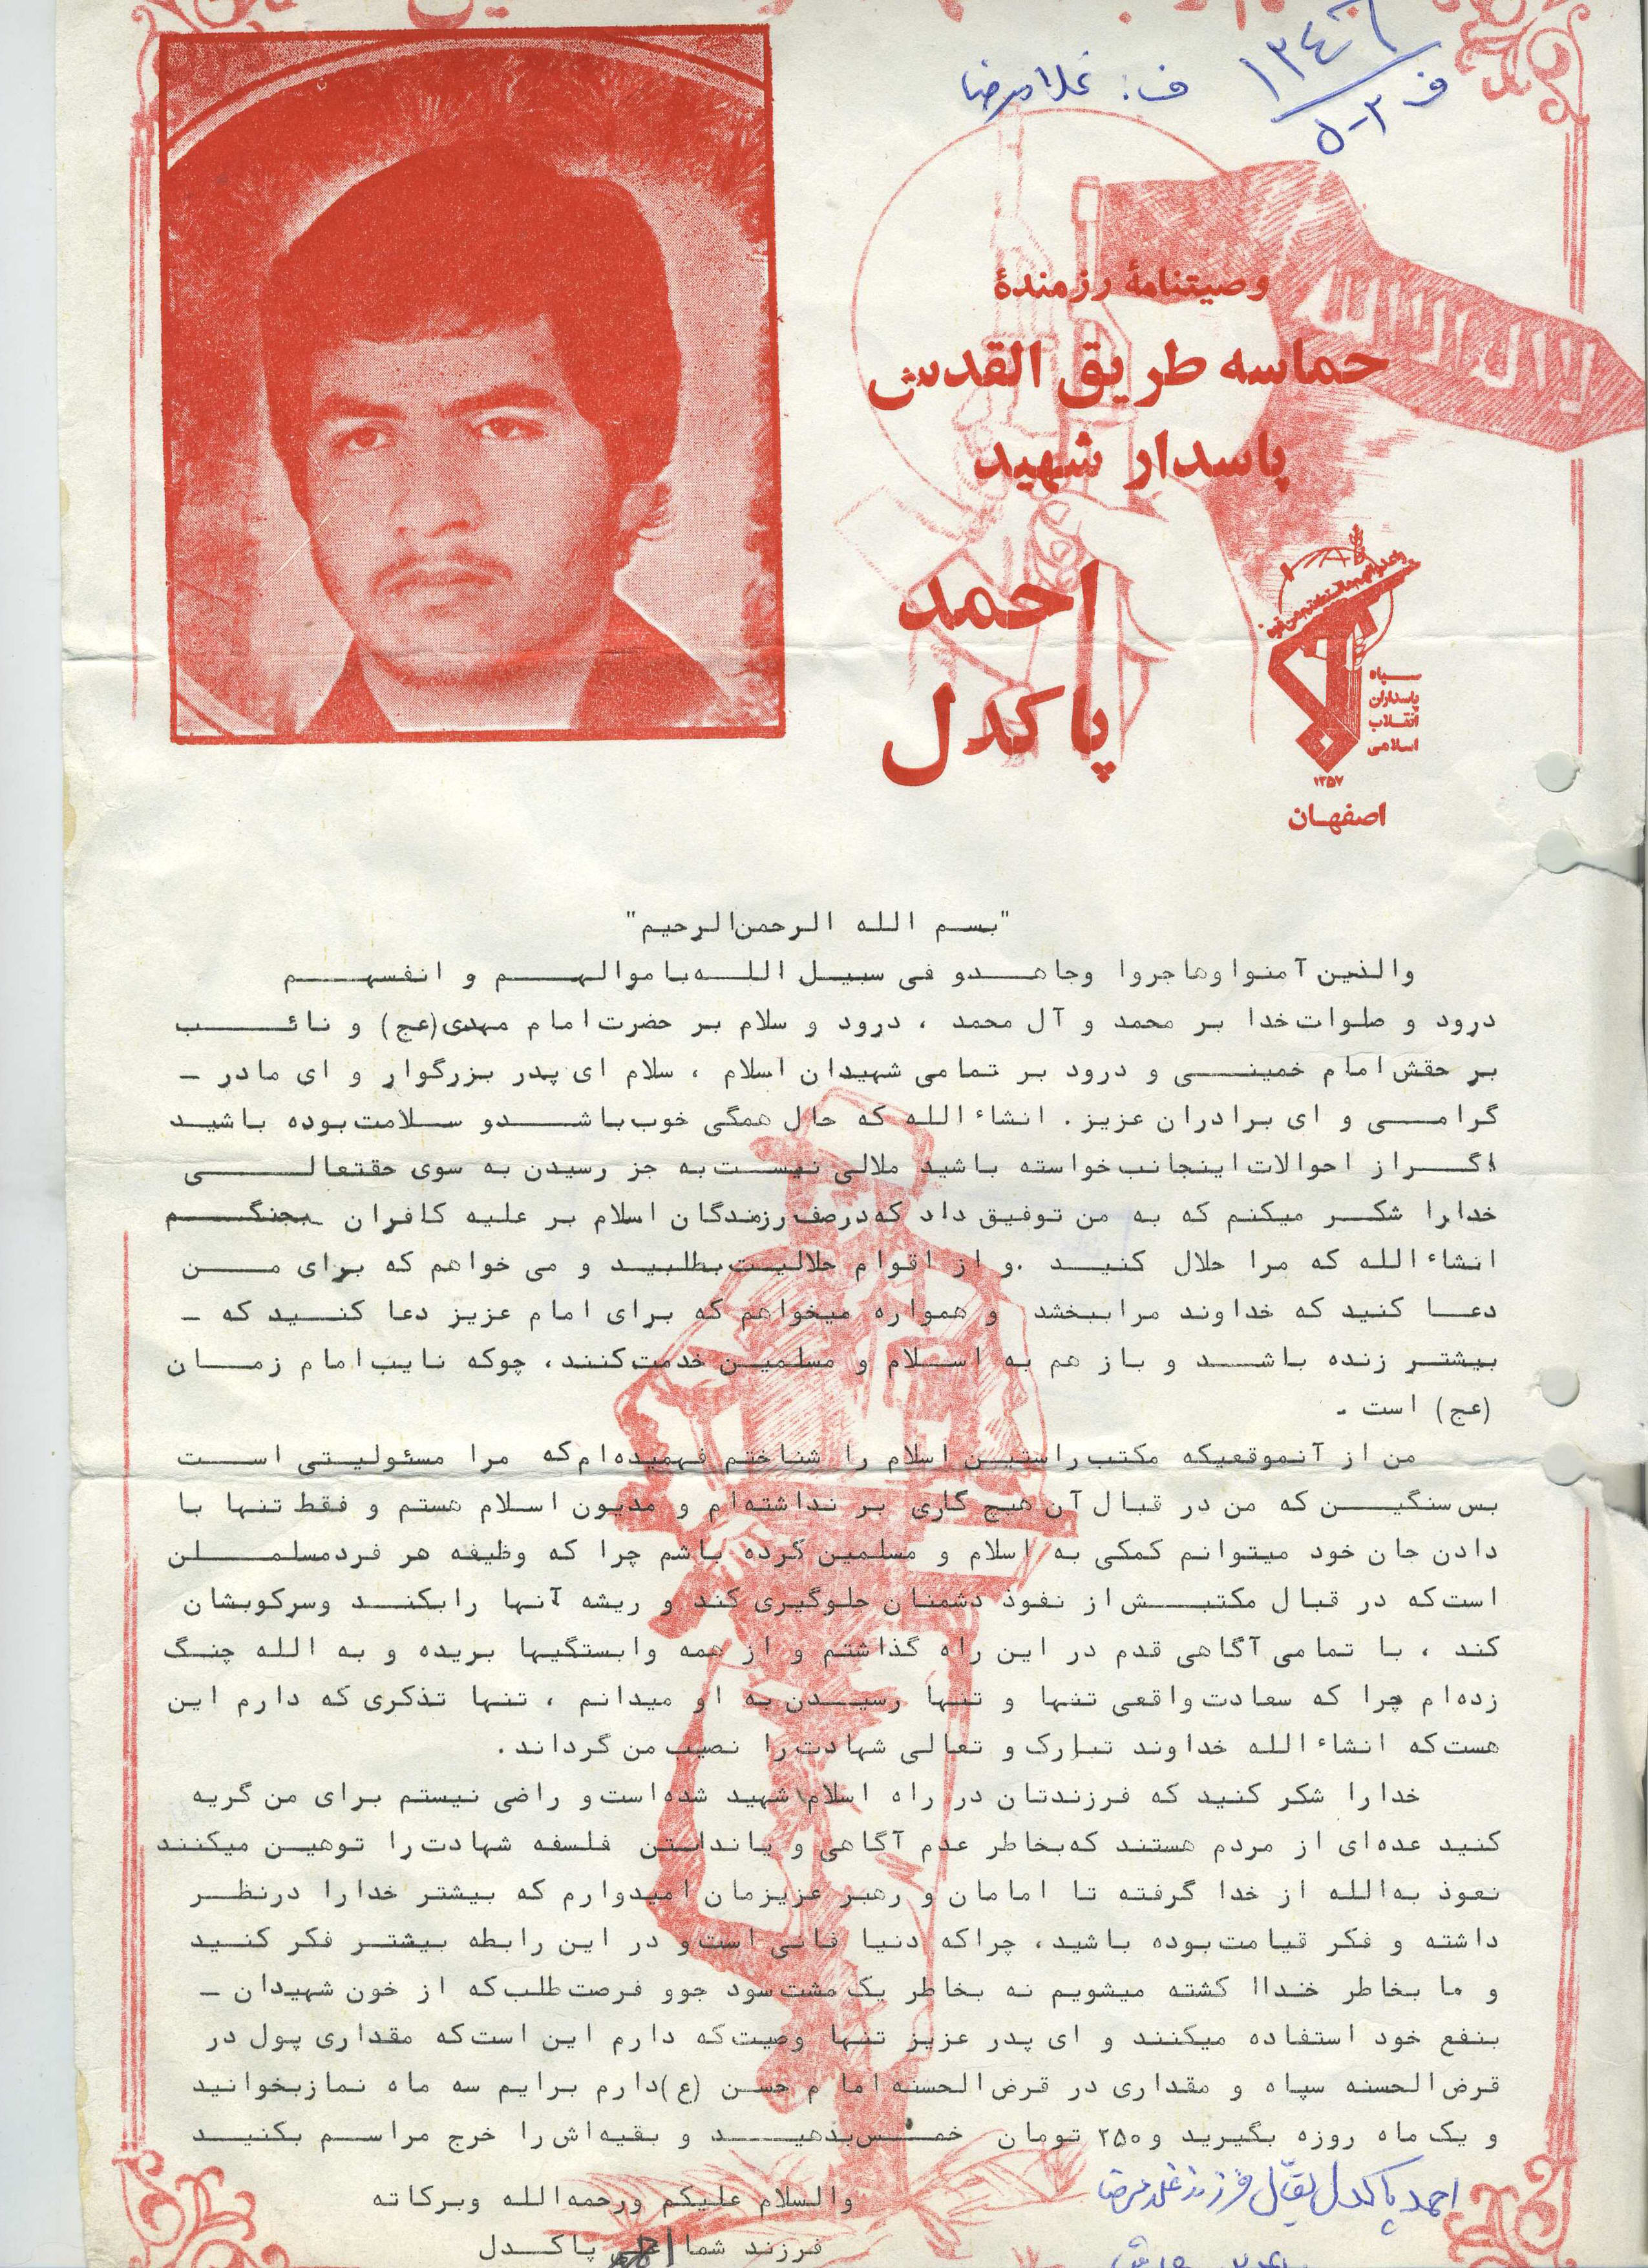 ف: غلامرضا
ف ۳-۵
وصیتنامهٔ رزمندهٔ
حماسه طریق القدس
پاسدار شهید
احمد
پاکدل
لا اله الا الله
سپاه
پاسداران
انقلاب
اسلامی
۱۳۵۷
اصفهان
"بسم الله الرحمن الرحیم"
والذین آمنوا وهاجروا وجاهدو فی سبیل الله باموالهم و انفسهم
درود و صلوات خدا بر محمد و آل محمد ، درود و سلام بر حضرت امام مهدی (عج) و نائب
بر حقش امام خمینی و درود بر تمامی شهیدان اسلام ، سلام ای پدر بزرگوار و ای مادر -
گرامی و ای برادران عزیز . انشاء الله که حال همگی خوب باشدو سلامت بوده باشید
اگراز احوالات اینجانب خواسته باشید ملالی نیست به جز رسیدن به سوی حقتعالی
خدارا شکر میکنم که به من توفیق داد که درصف رزمندگان اسلام بر علیه کافران بجنگم
انشاء الله که مرا حلال کنید .و از اقوام حلالیت بطلبید و می خواهم که برای من
دعا کنید که خداوند مراببخشد و همواره میخواهم که برای امام عزیز دعا کنید که -
بیشتر زنده باشد و باز هم به اسلام و مسلمین خدمت کنند، چوکه نایب امام زمان
(عج) است .
من از آنموقعیکه مکتب راستین اسلام را شناختم فهمیده‌ام که مرا مسئولیتی است
بس سنگین که من در قبال آن هیچ گاری بر نداشته‌ام و مدیون اسلام هستم و فقط تنها با
دادن جان خود میتوانم کمکی به اسلام و مسلمین کرده باشم چرا که وظیفه هر فردمسلملن
است که در قبال مکتبش از نفوذ دشمنان جلوگیری کند و ریشه آنها رابکند وسرکوبشان
کند ، با تمامی آگاهی قدم در این راه گذاشتم و از همه وابستگیها بریده و به الله چنگ
زده‌ام چرا که سعادت واقعی تنها و تنها رسیدن به او میدانم ، تنها تذکری که دارم این
هست که انشاء الله خداوند تبارک و تعالی شهادت را نصیب من گرداند.
خدارا شکر کنید که فرزندتان در راه اسلام شهید شده است و راضی نیستم برای من گریه
کنید عده‌ای از مردم هستند که بخاطر عدم آگاهی و یا نداشتن فلسفه شهادت را توهین میکنند
نعوذ به الله از خدا گرفته تا امامان و رهبر عزیزمان امیدوارم که بیشتر خدارا درنظر
داشته و فکر قیامت بوده باشید، چراکه دنیا فانی است و در این رابطه بیشتر فکر کنید
و ما بخاطر خداا کشته میشویم نه بخاطر یک مشت سود جوو فرصت طلب که از خون شهیدان -
بنفع خود استفاده میکنند و ای پدر عزیز تنها وصیت که دارم این است که مقداری پول در
قرض الحسنه سپاه و مقداری در قرض الحسنه امام حسن (ع) دارم برایم سه ماه نمازبخوانید
و یک ماه روزه بگیرید و ۲۵۰ تومان خمس بدهید و بقیه‌اش را خرج مراسم بکنید
والسلام علیکم ورحمه الله وبرکاته
احمد پاکدل بقال فرزند غلامرضا
فرزند شما احمد پاکدل